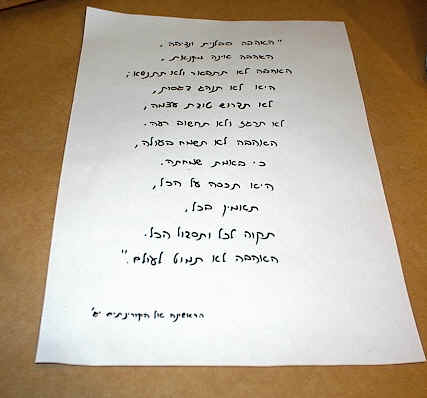 "האהבה סבלנית ונדיבה,
האהבה אינה מקנאת,
האהבה לא תתפאר ולא תתנשא;
היא לא תנהג בגסות,
לא תדרוש טובת עצמה,
לא תרגז ולא תחשוב רעה.
האהבה לא תשמח בעולה,
כי באמת שמחתה.
היא תכסה על הכל,
תאמין בכל,
תקוה לכל ותסבול הכל.
האהבה לא תמוט לעולם."
הראשונה אל הקורינתים יג'